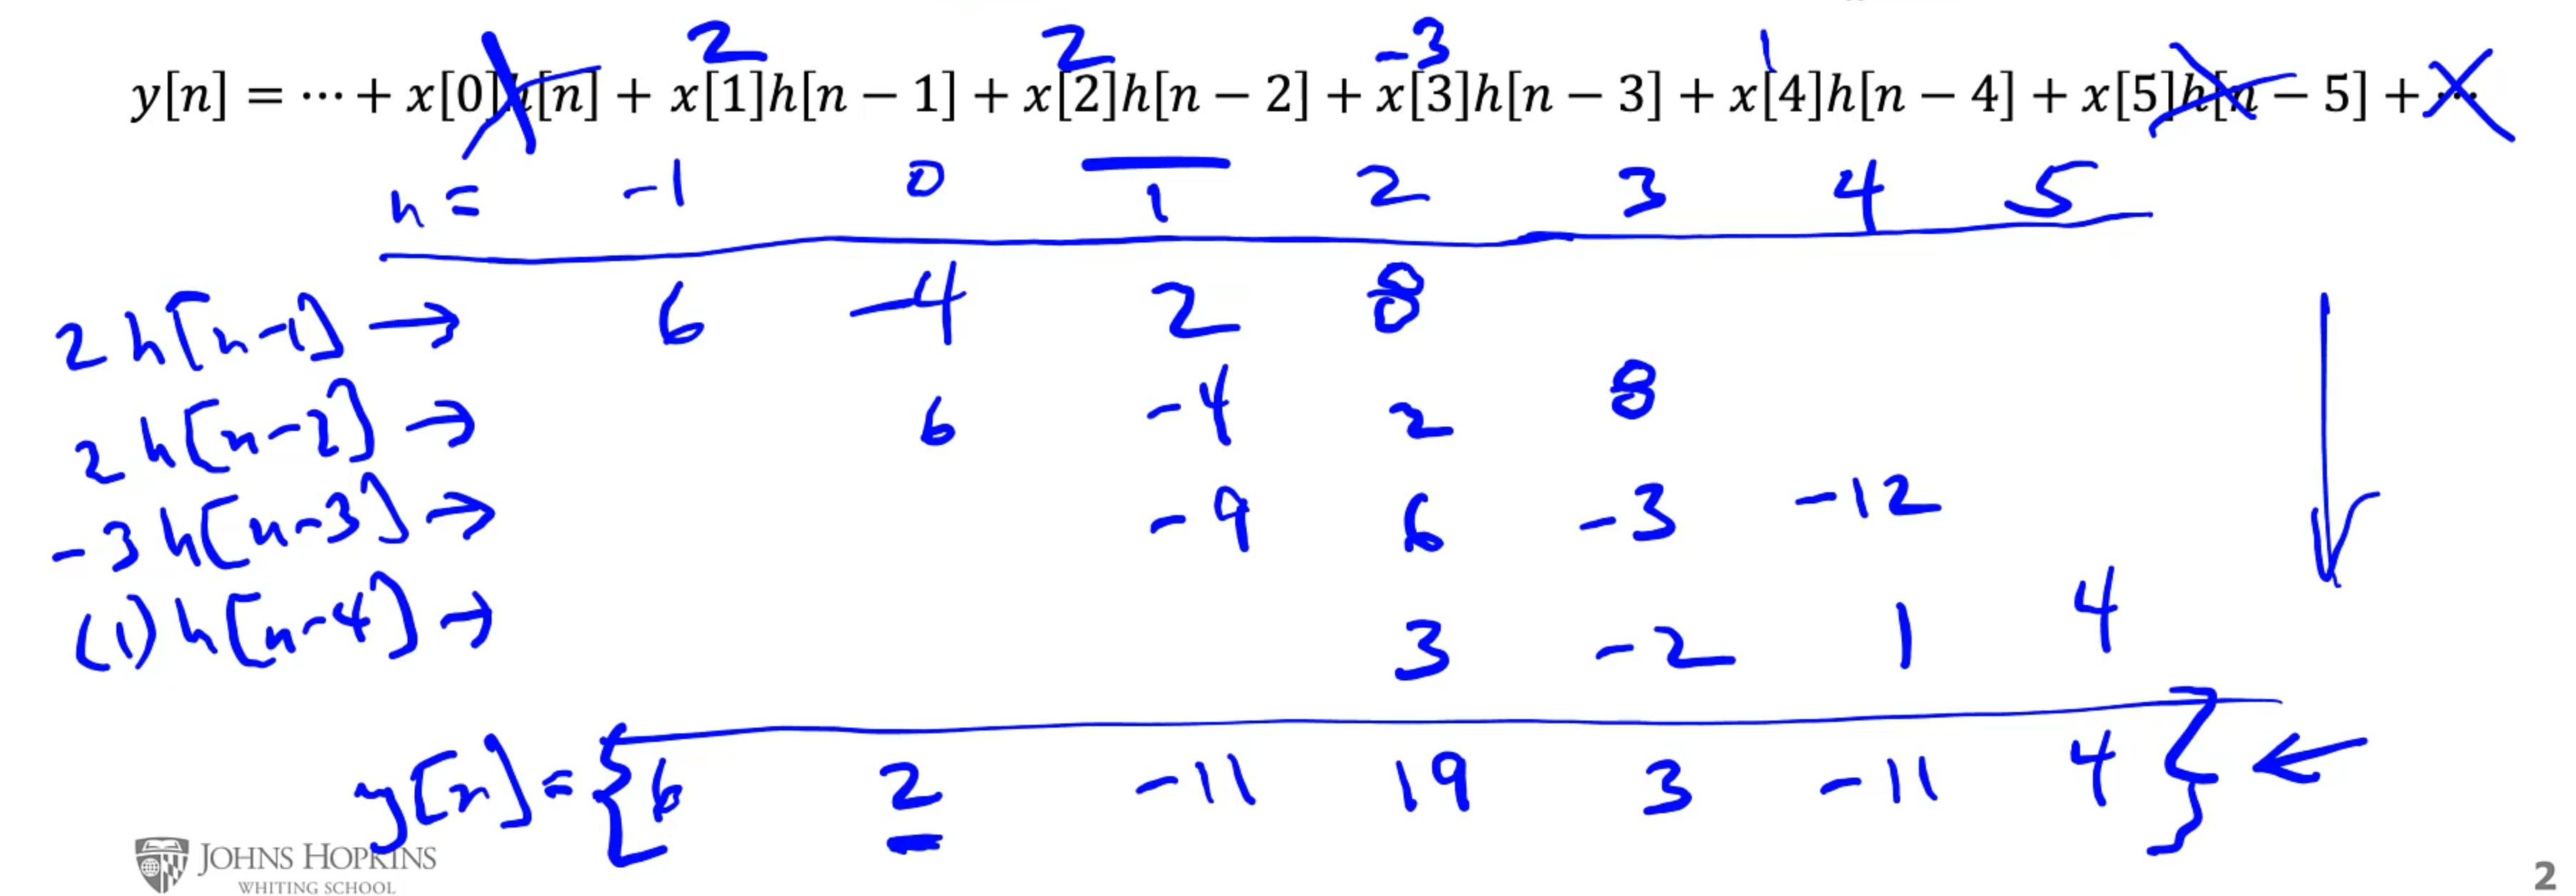 2 2 -3 1
y[n] = ⋯ + x[0]h[n] + x[1]h[n − 1] + x[2]h[n − 2] + x[3]h[n − 3] + x[4]h[n − 4] + x[5]h[n − 5] + ⋯
n = -1 0 1 2 3 4 5
2h[n-1] → 6 -4 2 8
2h[n-2] → 6 -4 2 8
-3h[n-3] → -9 6 -3 -12
(1)h[n-4] → 3 -2 1 4
y[n] = {6 2 -11 19 3 -11 4} ←
JOHNS HOPKINS
WHITING SCHOOL
2